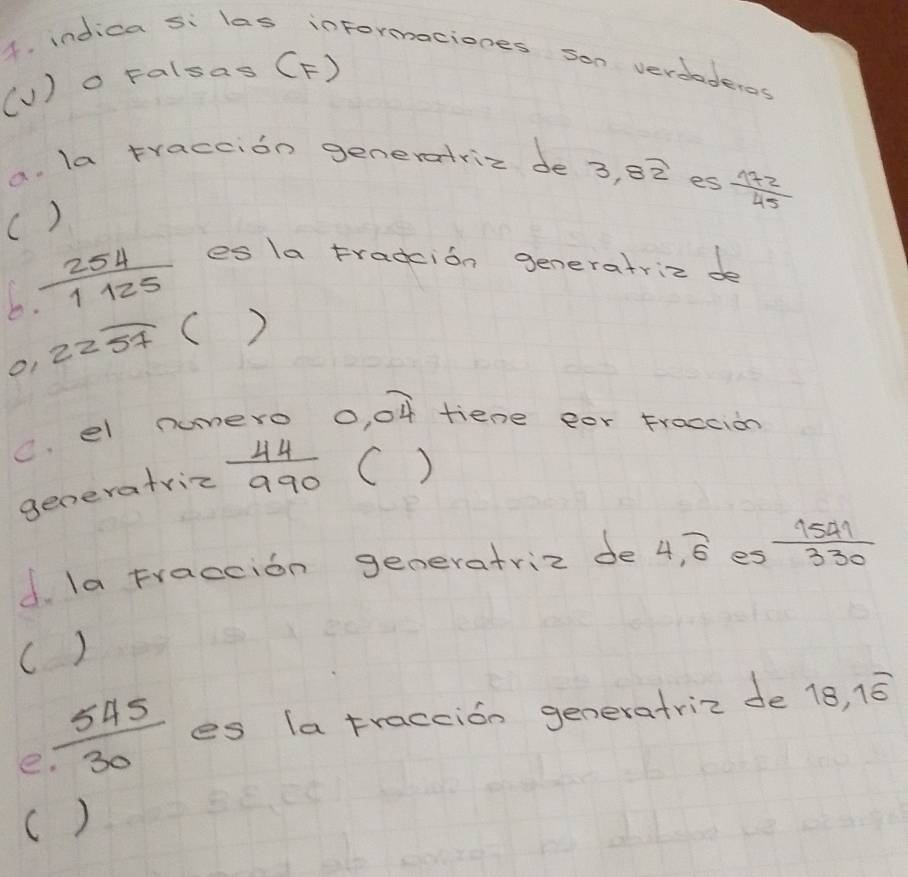 7. indica si las informaciones son verdaderas
(V) o Falsas (F)
a. la Fracción generatriz de 3,8\overline{2} es \frac{172}{45}
( )
b. \frac{254}{1125} es la Fracción generatriz de
0,22\overline{57} ( )
c. el numero 0,\overline{04} tiene por Fracción
generatriz \frac{44}{990} ( )
d. la Fracción generatriz de 4,\overline{6} es \frac{1541}{330}
( )
e. \frac{545}{30} es la Fracción generatriz de 18,1\overline{6}
( )